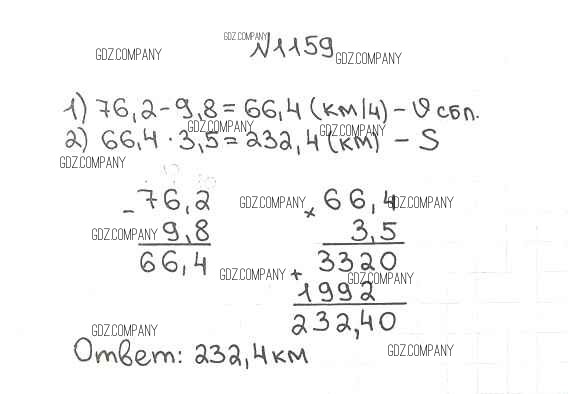 GDZ.COMPANY
№1159
GDZ.COMPANY
GDZ.COMPANY
1) 76,2-9,8=66,4 (км/ч) - υ сбп.
GDZ.COMPANY
GDZ.COMPANY
2) 66,4·3,5=232,4(км) - S
GDZ.COMPANY
-76,2
GDZ.COMPANY
×66,4
GDZ.COMPANY
GDZ.COMPANY
9,8
3,5
66,4
GDZ.COMPANY
+3320
GDZ.COMPANY
1992
232,40
GDZ.COMPANY
Ответ: 232,4км
GDZ.COMPANY